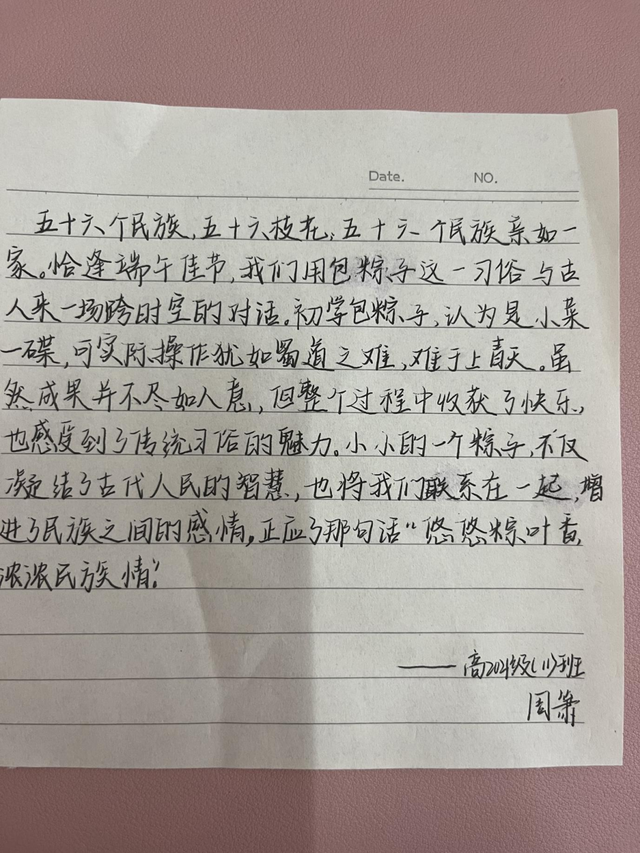 Date. NO.
五十六个民族,五十六枝花,五十六个民族亲如一
家。恰逢端午佳节,我们用包粽子这一习俗与古
人来一场跨时空的对话。初学包粽子,认为是小菜
一碟,可实际操作犹如蜀道之难,难于上青天。虽
然成果并不尽如人意,但整个过程中收获了快乐,
也感受到了传统习俗的魅力。小小的一个粽子,不仅
凝结了古代人民的智慧,也将我们联系在一起,增
进了民族之间的感情。正应了那句话“悠悠粽叶香,
浓浓民族情”
——高2021级(11)班
周箫